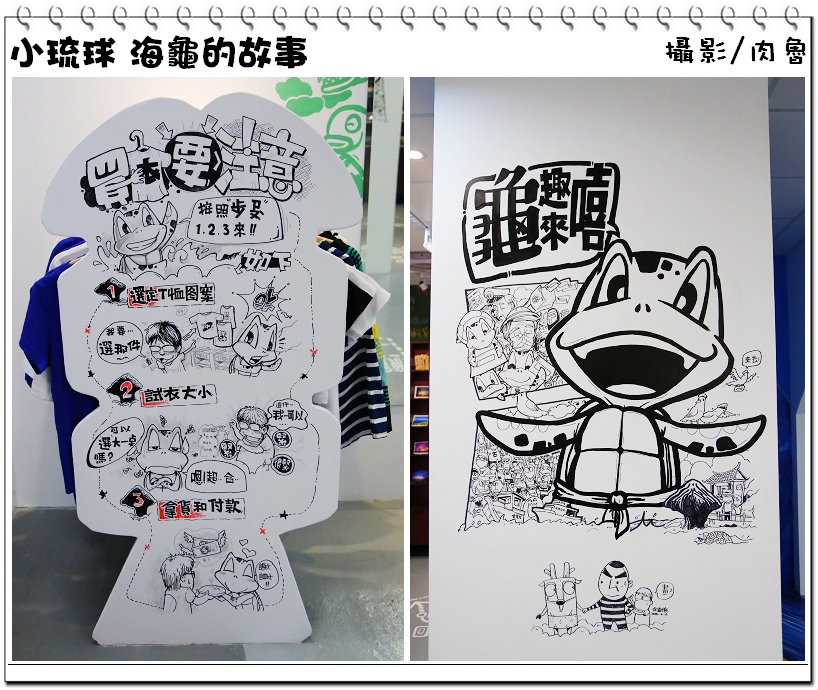 小琉球 海龜的故事
攝影/肉魯
買衣要注意
按照步及
1.2.3來!!
如下
1 選定T恤图案
我要…
選那件
2 試衣大小
可以
選大一点
嗎?
這件…
我可以
嗯!超 合
3 拿貨和付款
龜趣來嘻